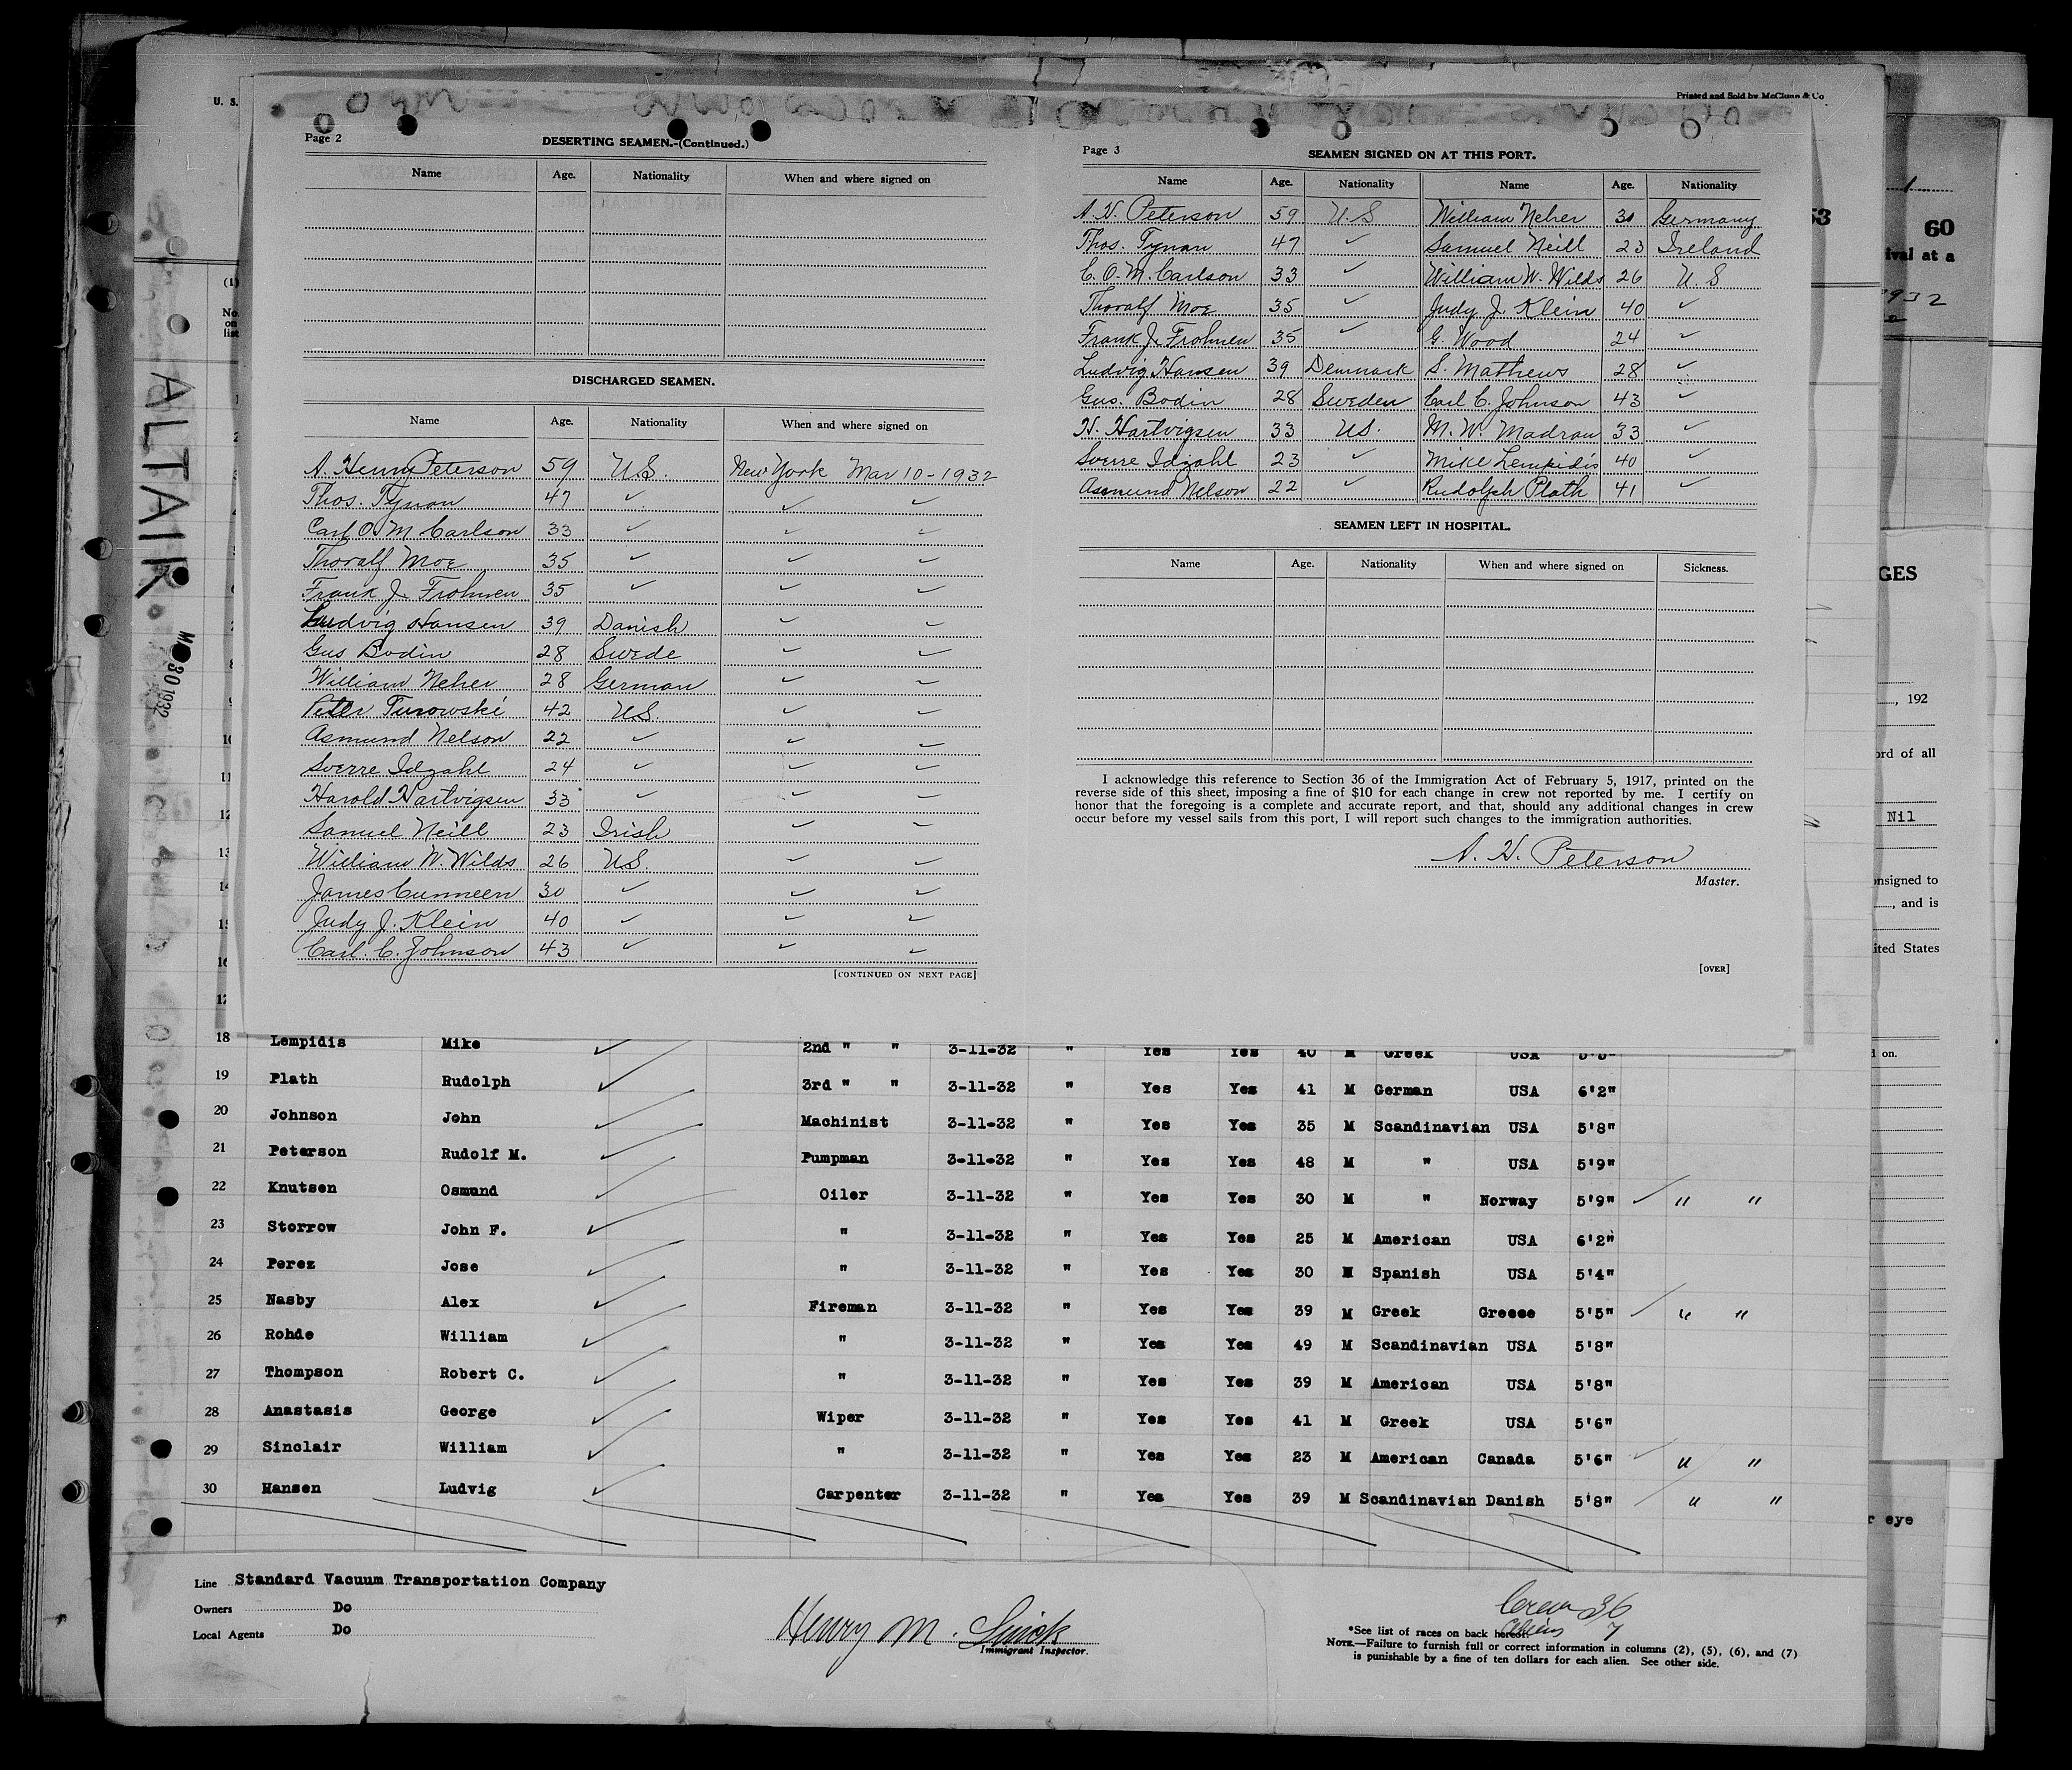 Printed and Sold by McClunn & Co
U. S.
Page 2
DESERTING SEAMEN.-(Continued.)
Name Age. Nationality When and where signed on
DISCHARGED SEAMEN.
Name Age. Nationality When and where signed on
A. Henry Peterson 59 U.S. New York Mar 10-1932
Thos. Tynan 47 ✓ ✓ ✓
Carl O. M Carlson 33 ✓ ✓ ✓
Thoralf Moe 35 ✓ ✓ ✓
Frank J. Frohnen 35 ✓ ✓ ✓
Ludvig Hansen 39 Danish ✓ ✓
Gus Bodin 28 Swede ✓ ✓
William Neher 28 German ✓ ✓
Peter Turowski 42 U.S. ✓ ✓
Asmund Nelson 22 ✓ ✓ ✓
Sverre Idzahl 24 ✓ ✓ ✓
Harold Hartvigsen 33 ✓ ✓ ✓
Samuel Neill 23 Irish ✓ ✓
William W. Wilds 26 U.S. ✓ ✓
James Cunneen 30 ✓ ✓ ✓
Judy J. Klein 40 ✓ ✓ ✓
Carl. C. Johnson 43 ✓ ✓ ✓
[CONTINUED ON NEXT PAGE]
Page 3
SEAMEN SIGNED ON AT THIS PORT.
Name Age. Nationality Name Age. Nationality
A. H. Peterson 59 U.S William Neher 30 Germany
Thos. Tynan 47 ✓ Samuel Neill 23 Ireland
C. O. M. Carlson 33 ✓ William W. Wilds 26 U.S
Thoralf Moe 35 ✓ Judy J. Klein 40 ✓
Frank J. Frohnen 35 ✓ G. Wood 24 ✓
Ludvig Hansen 39 Denmark S. Mathews 28 ✓
Gus. Bodin 28 Sweden Carl C. Johnson 43 ✓
H. Hartvigsen 33 US. M. W. Madran 33 ✓
Sverre Idzahl 23 ✓ Mike Lempidis 40 ✓
Asmund Nelson 22 ✓ Rudolph Plath 41 ✓
SEAMEN LEFT IN HOSPITAL.
Name Age. Nationality When and where signed on Sickness.
I acknowledge this reference to Section 36 of the Immigration Act of February 5, 1917, printed on the
reverse side of this sheet, imposing a fine of $10 for each change in crew not reported by me. I certify on
honor that the foregoing is a complete and accurate report, and that, should any additional changes in crew
occur before my vessel sails from this port, I will report such changes to the immigration authorities.
A. H. Peterson
Master.
[OVER]
ALTAIR
30 1932
(1)
No.
on
list
1
2
3
4
5
6
7
8
9
10
11
12
13
14
15
16
17
18 Lempidis Mike ✓ 2nd " " 3-11-32 " Yes Yes 40 M Greek USA 5'5"
19 Plath Rudolph ✓ 3rd " " 3-11-32 " Yes Yes 41 M German USA 6'2"
20 Johnson John ✓ Machinist 3-11-32 " Yes Yes 35 M Scandinavian USA 5'8"
21 Peterson Rudolf M. ✓ Pumpman 3-11-32 " Yes Yes 48 M " USA 5'9"
22 Knutsen Osmund ✓ Oiler 3-11-32 " Yes Yes 30 M " Norway 5'9" ✓ " "
23 Storrow John F. ✓ " 3-11-32 " Yes Yes 25 M American USA 6'2"
24 Perez Jose ✓ " 3-11-32 " Yes Yes 30 M Spanish USA 5'4"
25 Nasby Alex ✓ Fireman 3-11-32 " Yes Yes 39 M Greek Greece 5'5" ✓ " "
26 Rohde William ✓ " 3-11-32 " Yes Yes 49 M Scandinavian USA 5'8"
27 Thompson Robert C. ✓ " 3-11-32 " Yes Yes 39 M American USA 5'8"
28 Anastasis George ✓ Wiper 3-11-32 " Yes Yes 41 M Greek USA 5'6"
29 Sinclair William ✓ " 3-11-32 " Yes Yes 23 M American Canada 5'6" ✓ " "
30 Hansen Ludvig ✓ Carpenter 3-11-32 " Yes Yes 39 M Scandinavian Danish 5'8" " "
Line Standard Vacuum Transportation Company
Owners Do
Local Agents Do
Henry M.
Immigrant Inspector.
Crew 36
Aliens 7
*See list of races on back hereof.
NOTE.—Failure to furnish full or correct information in columns (2), (5), (6), and (7)
is punishable by a fine of ten dollars for each alien. See other side.
1
53
60
ival at a
1932
GES
, 192
ord of all
Nil
onsigned to
, and is
ited States
on.
r eye